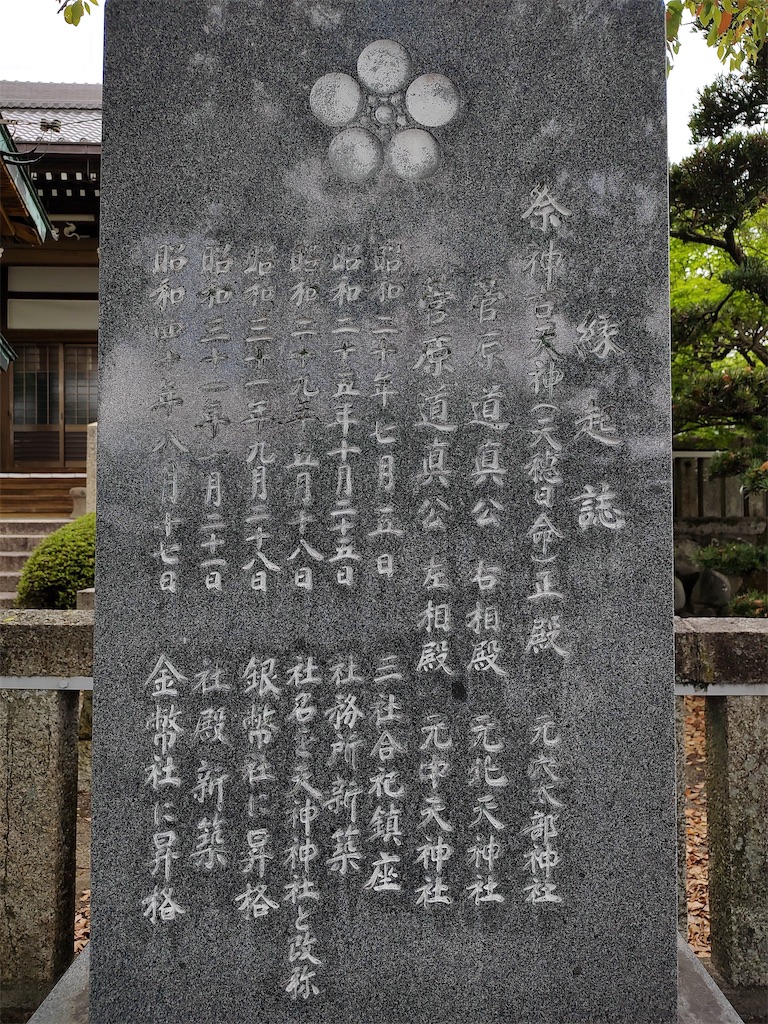 縁起誌
祭神 古天神(天穂日命)正殿 元穴太部神社
菅原道真公 右相殿 元北天神社
菅原道真公 左相殿 元中天神社
昭和二十年七月五日 三社合祀鎮座
昭和二十五年十月二十五日 社務所新築
昭和二十九年五月十八日 社名を天神神社と改称
昭和三十一年九月二十八日 銀幣社に昇格
昭和三十一年十一月二十一日 社殿新築
昭和四十年八月十七日 金幣社に昇格